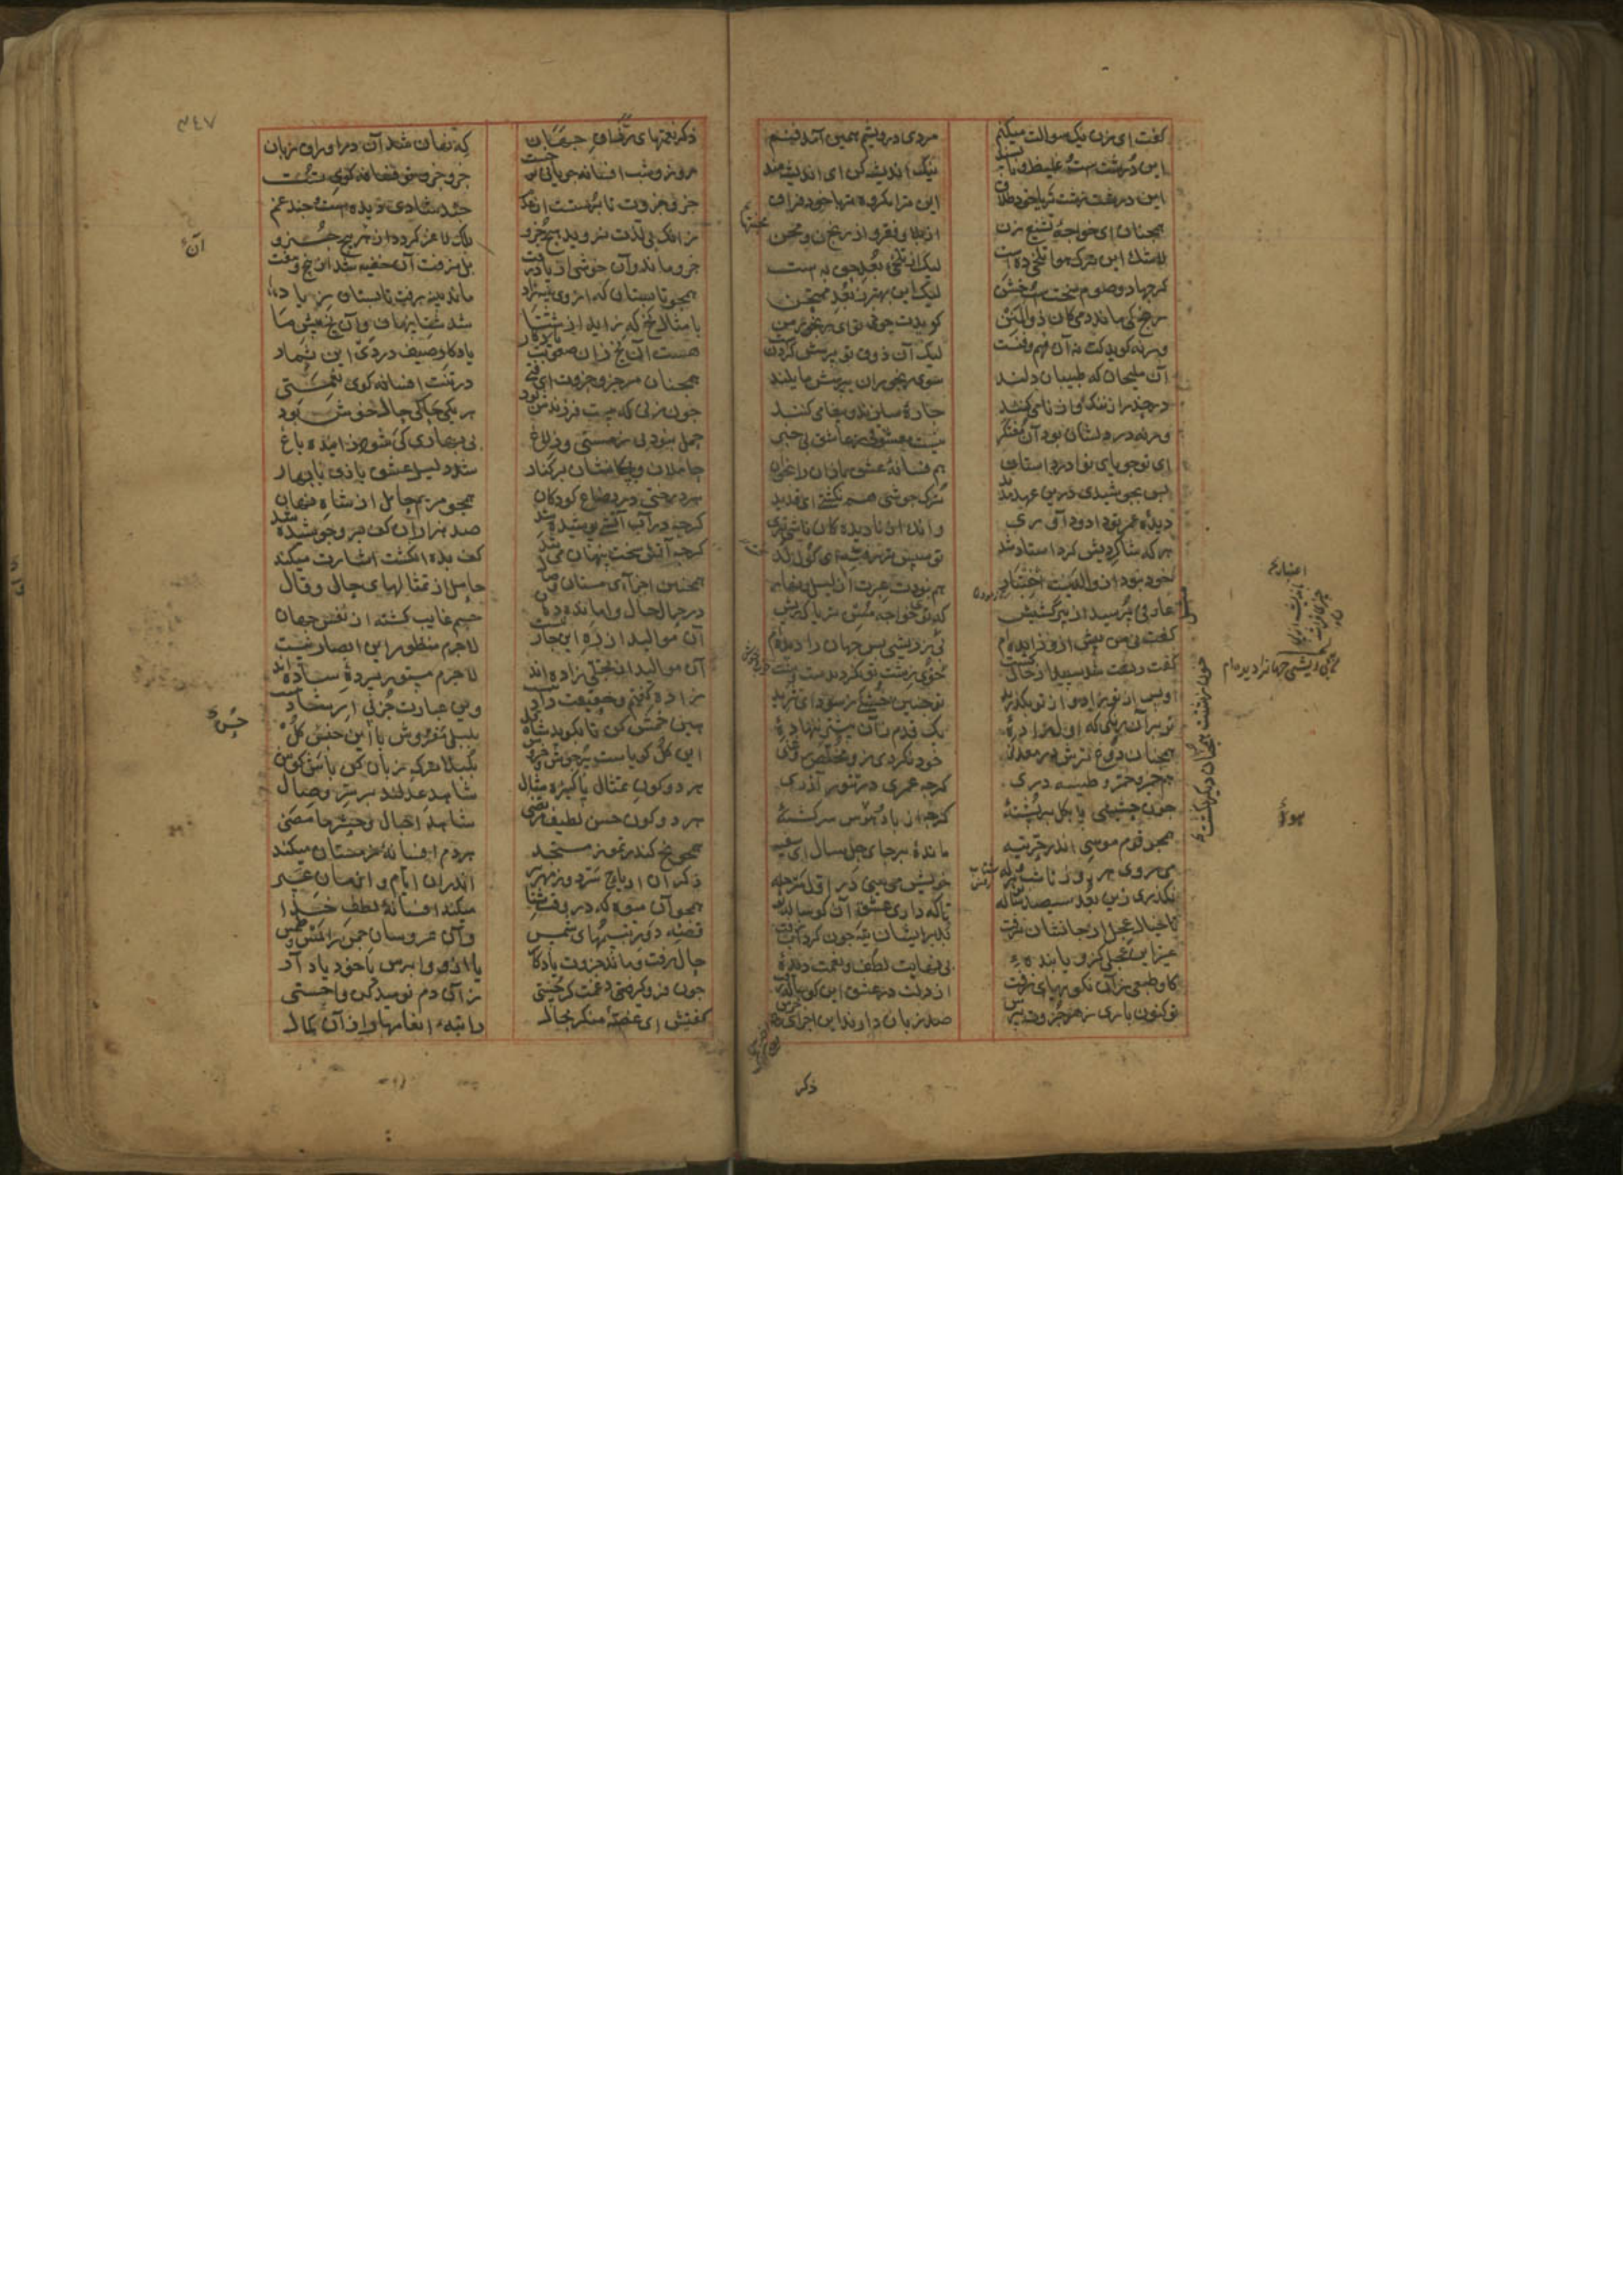 کفت ای زن یک سوالت میکنم
مردی درویشم همین آمد فنم
این درشتست و غلیظ و ناپسند
نیک اندیشه کن ای اندیشه مند
این درشت و زشت تر یا خود طلاق
این ترا مکروه تر یا خود فراق
همجنان ای خواجهٔ تشنیع زن
از بلا و فقر و از رنج و محن
لاشک این ترک هوا تلخی ده است
لیک از تلخی بعد حق به است
کر جهاد و صوم سختست و خشن
لیک این بهتر ز بعد ممتحن
رنج کی ماند دمی کان ذو المنن
کویدت چونی تو ای رنجور من
ور نکوید کت نه آن فهم و فنست
لیک آن ذوق تو پرسش کردنست
آن ملیحان که طبیبان دلند
سوی رنجوران بپرسش مایلند
ور حذر از ننک و از نامی کنند
چارهٔ سازند و پیغامی کنند
ورنه در دلشان بود آن مفتکر
نیست معشوقی ز عاشق بی خبر
ای تو جویای نوادر داستان
هم فسانهٔ عشق بازان را بخوان
بس بجوشیدی درین عهد مدید
ترک جوشی هم نکشتی ای قدید
دیدهٔ عمری تو داد و داوری
وانکه از نادیدکان ناشی تری
هر که شاکردیش کرد استاد شد
تو سپس تر رفتهٔ ای کور لد
خود نبود از والدینت اختبار
هم نبودت عبرت از لیل و نهار
عارفی پرسید از آن پیر کشیش
که توی خواجه مسن تر یا که ریش
کفت نی من پیش ازو زاییده ام
بی ز ریشی بس جهان را دیده ام
کفت ریشت شد سپید از حال کشت
خوی زشت تو نکردیدست وشت
او پس از تو زاد و از تو بکذرید
تو چنین خشکی ز سودای ثرید
تو بر آن رنکی که اول زادهٔ
یک قدم زان پیشتر ننهادهٔ
همجنان دوغ ترش در معدنی
خود نکردی زو مخلص روغنی
هم خمیری خمر طینه دری
کرچه عمری در تنور آذری
چون حشیشی پا بکل بر پشتهٔ
کرچه از باد هوس سرکشتهٔ
همجو قوم موسی اندر حر تیه
ماندهٔ بر جای چل سال ای سفیه
می روی هر روز تا شب هروله
خویش می بینی در اول مرحله
نکذری زین بعد سیصد ساله تو
تا که داری عشق آن کوساله تو
تا خیال عجل از جانشان نرفت
بد بر ایشان تیه چون کرداب تفت
غیر این عجلی کزو یابندهٔ
بی نهایت لطف و نعمت دیدهٔ
کاو طبعی زان نکوییهای زفت
از دلت در عشق این کوساله رفت
تو کنون باری ز هر جزوت بپرس
صد زبان دارند این اجزای خرس
ذکر
ذکر نعمتهای رزاق جهان
که نهان شد آن در اوراق زمان
روز و شب افسانه جویانی تو چست
جزو جزو تو فسانه کوی تست
جزو جزوت تا برستست از عدم
چند شادی دیده است و چند غم
زانک بی لذت نروید هیچ جزو
بلک لاغر کردد از هر پیچ جزو
جزو ماند و آن خوشی از یاد رفت
بل نرفت آن خفیه شد از پنج و هفت
همجو تابستان که از وی پنبه زاد
ماند پنبه رفت تابستان ز یاد
یا مثال یخ که زاید از شتا
شد شتا پنهان و آن یخ پیش ما
هست آن یخ زان صعوبت یادکار
یادکار صیف در دی این ثمار
همجنان هر جزو جزوت ای فتی
در تنت افسانه کوی نعمتی
چون زنی که بیست فرزندش بود
هر یکی حاکی حال خوش بود
حمل نبود بی ز مستی و ز لاغ
بی بهاری کی شود زاینده باغ
حاملان و بچکانشان بر کنار
شد دلیل عشق بازی با بهار
هر درختی در رضاع کودکان
همجو مریم حامل از شاه نهان
کرچه در آب آتشی پوشیده شد
صد هزاران کف برو جوشیده شد
کرچه آتش سخت پنهان می تند
کف بده انکشت اشارت میکند
همجنین اجزای مستان وصال
حامل از تمثالهای حال و قال
در جمال حال وا مانده دهان
چشم غایب کشته از نقش جهان
آن موالید از ره این چار نیست
لاجرم منظور این ابصار نیست
آن موالید از تجلی زاده اند
لاجرم مستور پردهٔ ساده اند
زاده کفتیم و حقیقت نزاد
وین عبارت جز پی ارشاد
هین خمش کن تا بکوید شاه قل
بلبلی مفروش با این جنس کل
این کل کویاست پر جوش و خروش
بلبلا ترک زبان کن باش کوش
هر دو کون تمثال پاکیزه مثال
شاهد عدلند بر سر وصال
هر دو کون حسن لطیف مرتضی
شاهد احبال و حشر ما مضی
همجو یخ کاندر تموز مستجد
هر دم افسانهٔ زمستان میکند
ذکر آن اریاح سرد و زمهریر
اندران ایام و ازمان عسیر
همجو آن میوه که در وقت شتا
میکند افسانهٔ لطف خدا
قصهٔ دور تبسمهای شمس
وآن عروسان چمن را لمس و طمس
حال رفت و ماند جزوت یادکار
یا ازو واپرس یا خود یاد آر
چون فرو کیرد غمت کر چستی
زان دم نومید کن واجستی
کفتیش ای غصهٔ منکر بحال
راتبهٔ انعامها را زان کمال